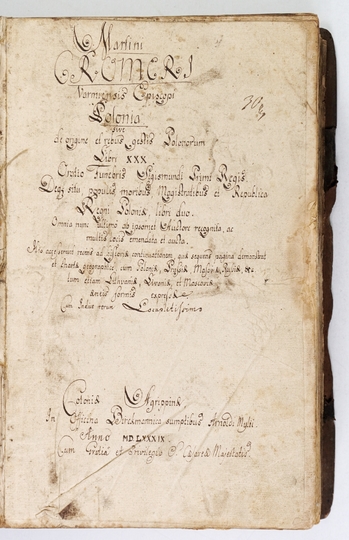 Martini
CROMERI
Varmiensis Episcopi
Polonia
sive
de origine et rebus gestis Polonorum
Libri XXX
Oratio Funebris Sigismundi Primi Regis
De situ populis moribus Magistratibus et Republica
Regni Polonici libri duo.
Omnia nunc ultimo ab ipsomet Auctore recognita, ac
multis locis emendata et aucta.
recens ad historiae continuationem, quae sequens pagina demonstrat
et chartae geographicae cum Poloniae, Prussiae, Masov: Russiae,
tum etiam Lithuaniae, Livoniae, et Moscoviae
formis expressae
Cum Indice rerum Locupletissimo
Coloniae Agrippinae
In Officina Birckmannica sumptibus Arnoldi Mylii
Anno MDLXXXIX
Cum Gratia et Privilegio S. Caesareae Maiestatis